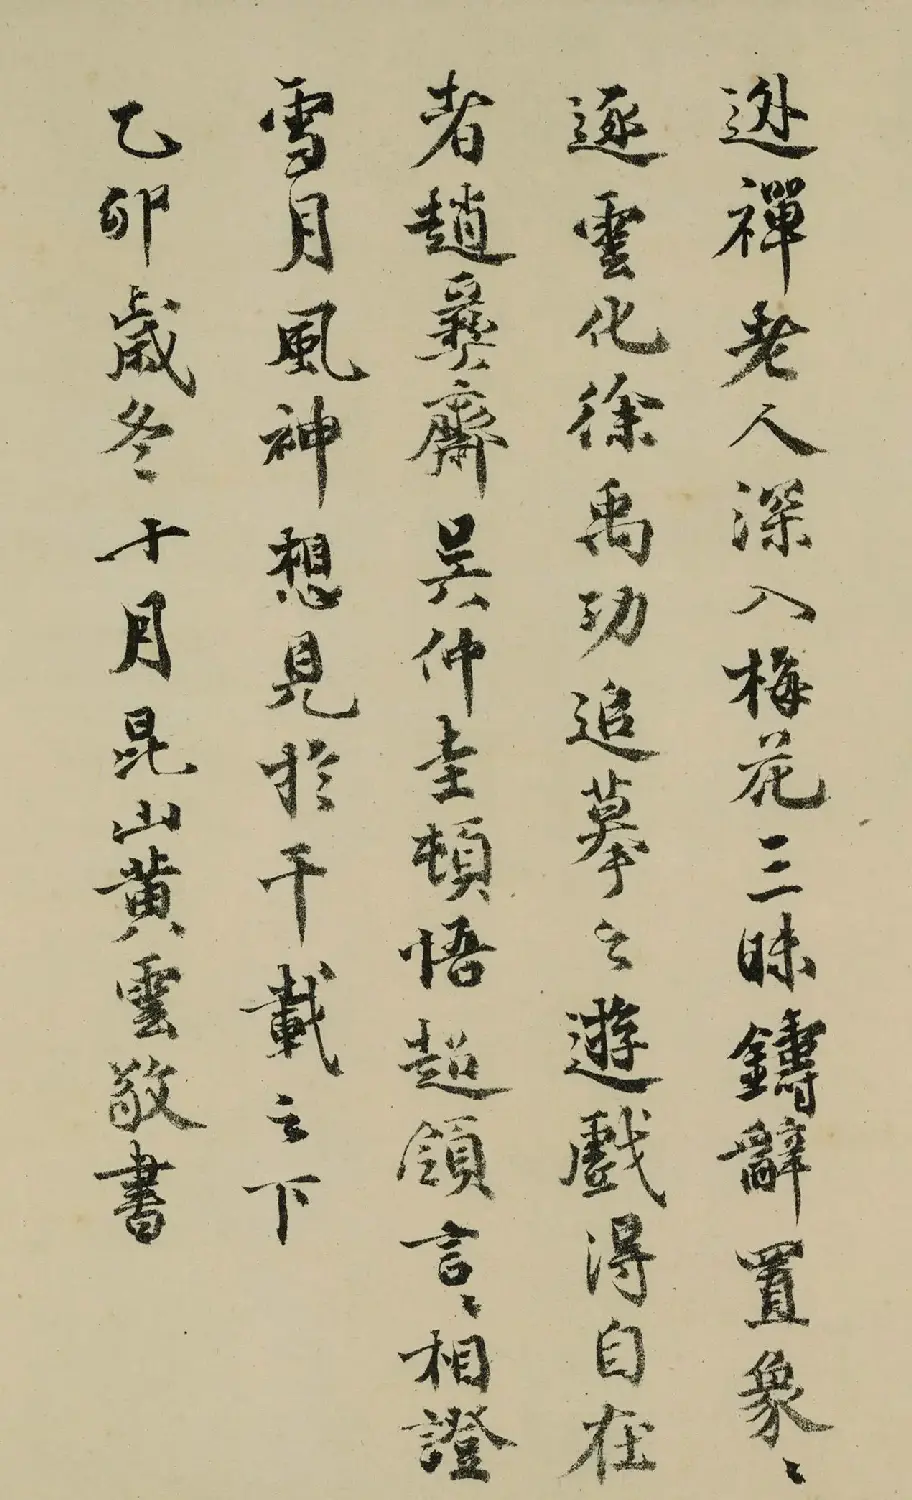 逃禪老人深入梅花三昧鑄辭置象〻
逐雲化徐禹功追摹之遊戲得自在
者趙彝齋吳仲圭頓悟超領言〻相證
雪月風神想見於千載之下
乙卯歲冬十月昆山黃雲敬書